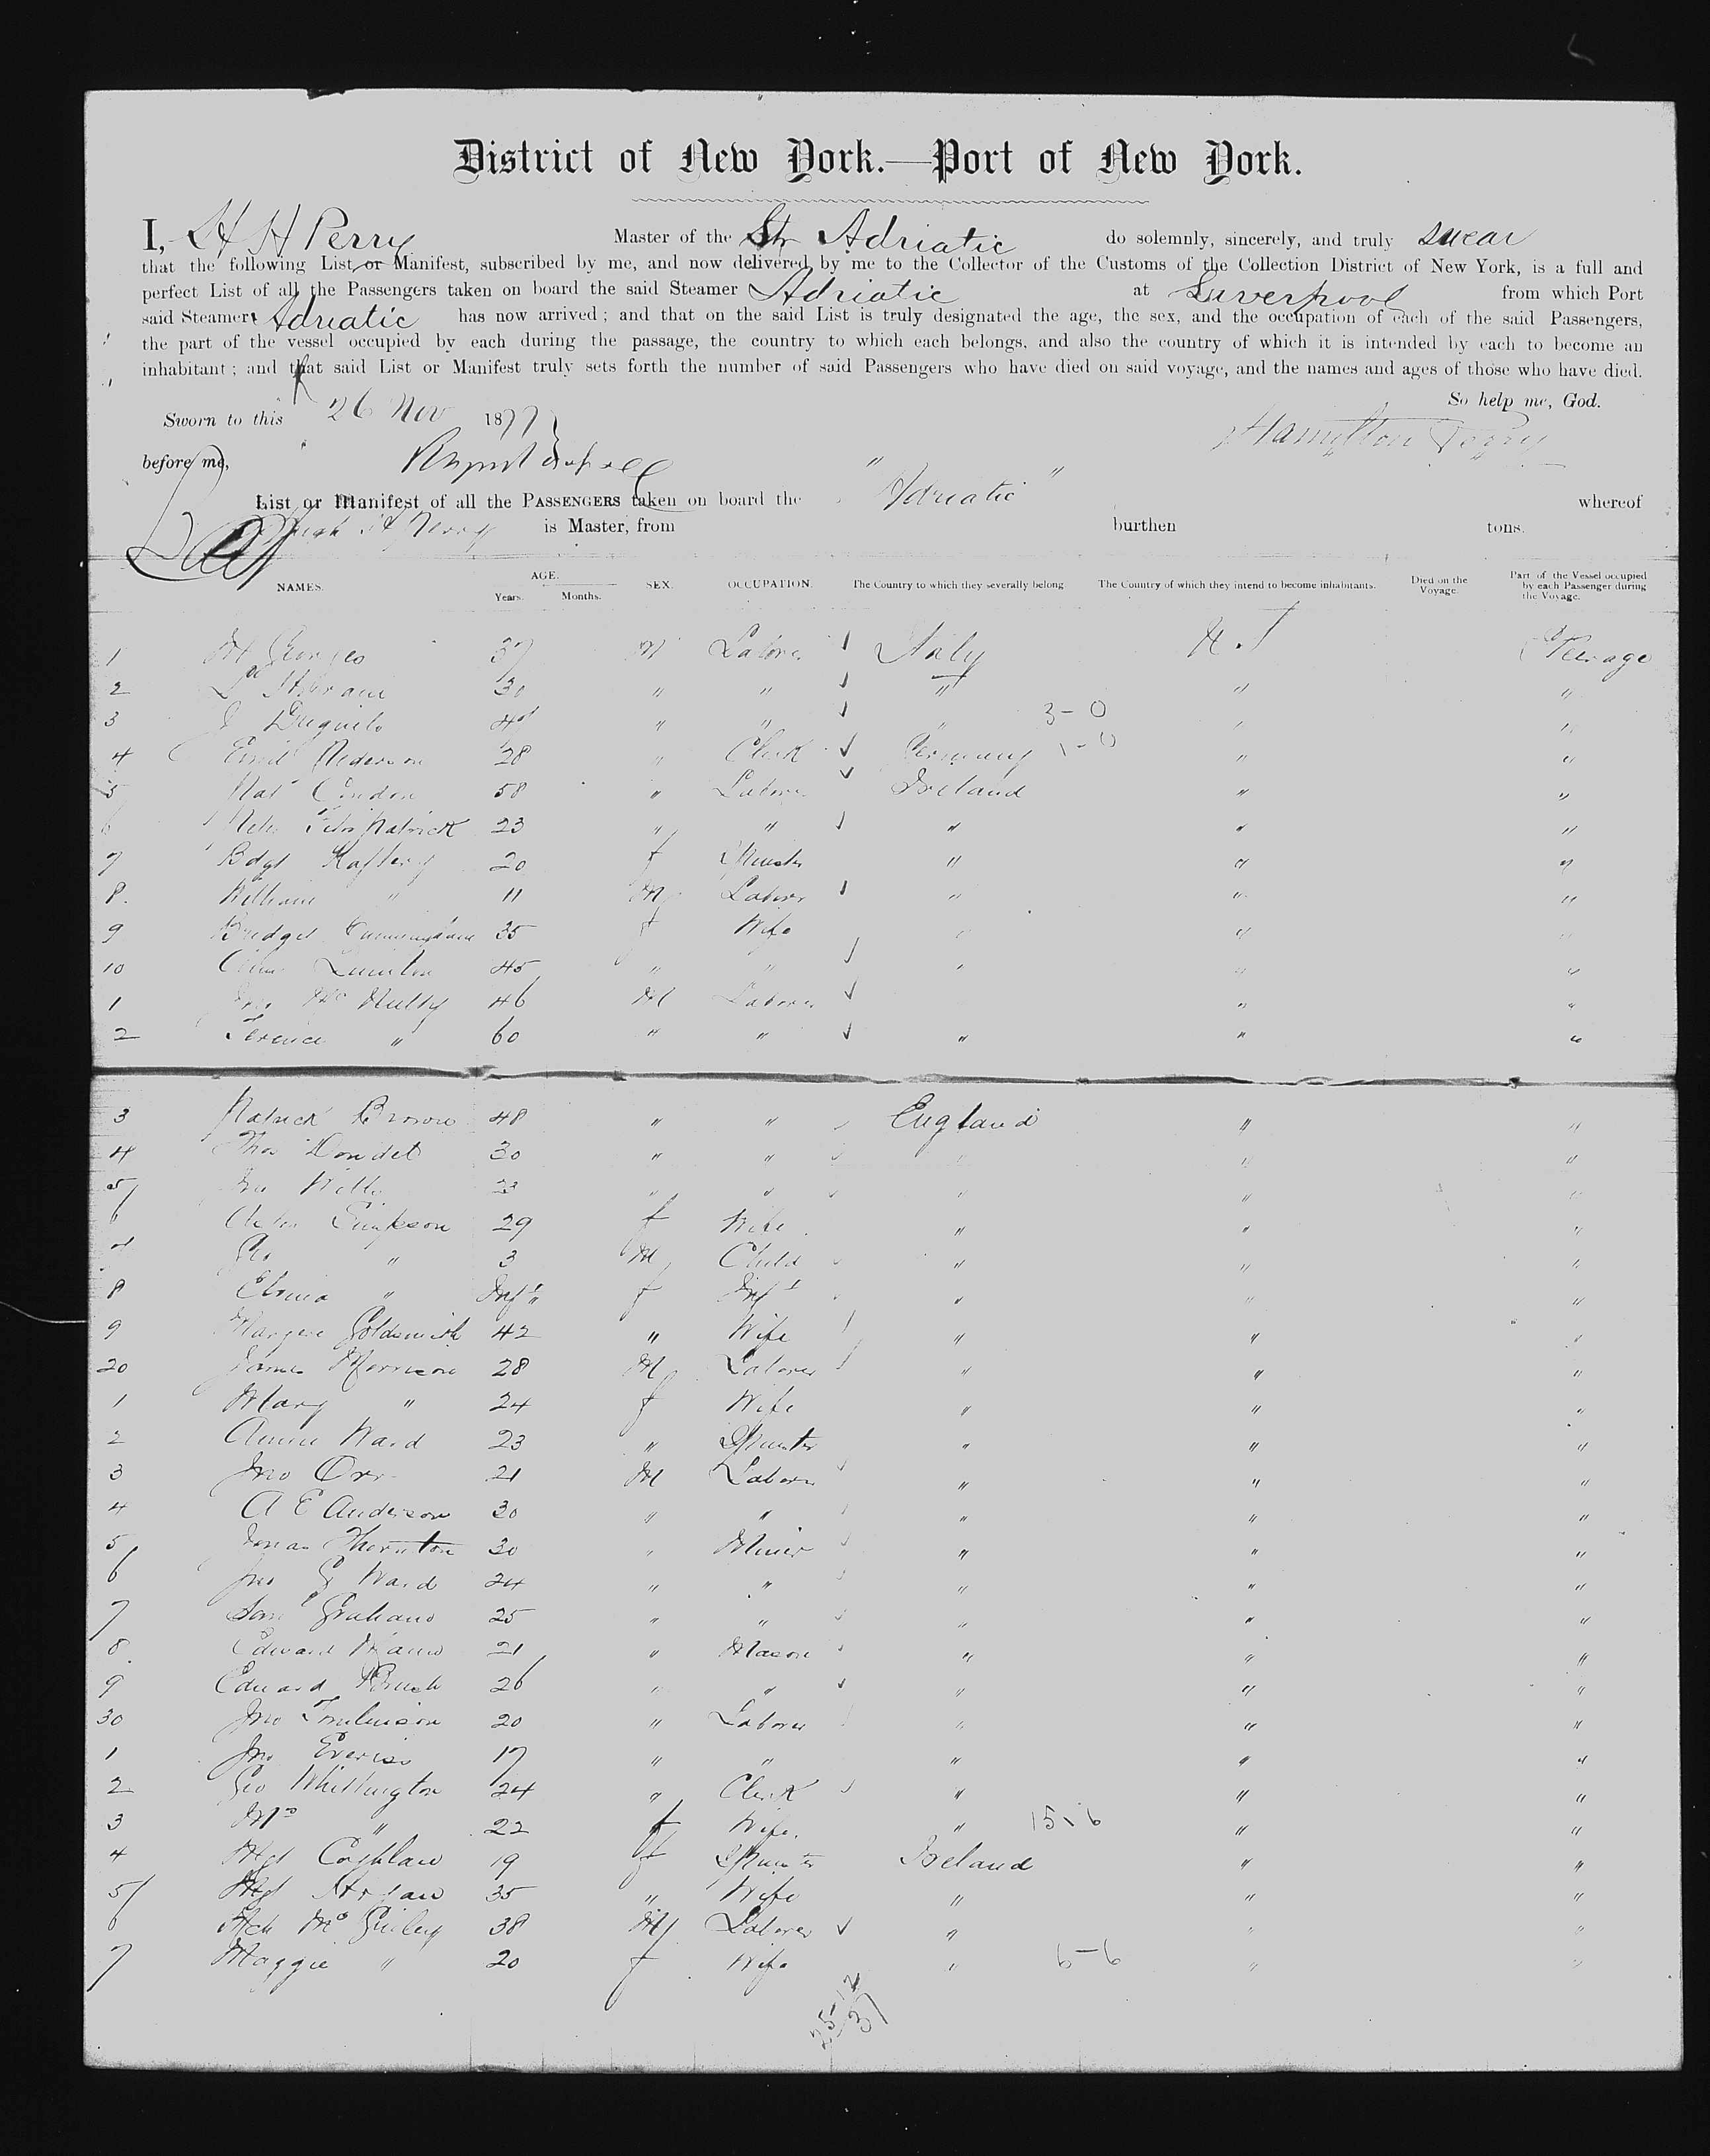 District of New York.—Port of New York.
I, H H Perry Master of the Str Adriatic do solemnly, sincerely, and truly swear
that the following List or Manifest, subscribed by me, and now delivered by me to the Collector of the Customs of the Collection District of New York, is a full and
perfect List of all the Passengers taken on board the said Steamer Adriatic at Liverpool from which Port
said Steamer Adriatic has now arrived; and that on the said List is truly designated the age, the sex, and the occupation of each of the said Passengers,
the part of the vessel occupied by each during the passage, the country to which each belongs, and also the country of which it is intended by each to become an
inhabitant; and that said List or Manifest truly sets forth the number of said Passengers who have died on said voyage, and the names and ages of those who have died.
So help me, God.
Sworn to this 26 Nov 1877
Hamilton Perry
before me,
List or Manifest of all the PASSENGERS taken on board the "Adriatic" whereof
H Perry is Master, from burthen tons.
NAMES. AGE. Years. Months. SEX. OCCUPATION. The Country to which they severally belong. The Country of which they intend to become inhabitants. Died on the Voyage. Part of the Vessel occupied by each Passenger during the Voyage.
1 37 M Laborer Italy U.S Steerage
2 30 " " " " "
3 J " " " 3-0 " "
4 Emil 28 " Clerk Germany 1-0 " "
5 Pat Condon 58 " Laborer Ireland " "
6 Peter Fitzpatrick 23 " " " " "
7 Bdgt Raftery 20 f Spinster " " "
8 William " 11 M Laborer " " "
9 Bridget Cunningham 35 f Wife " " "
10 Quinlan 45 " " " " "
1 Jno McNulty 46 M Laborer " "
2 Terence " 60 " " " " "
3 Patrick Brown 48 " " England " "
4 Thos 30 " " " " "
5 Jno " " " " "
6 Simpson 29 f Wife " " "
7 Geo " 3 M Child " " "
8 " Inft f Inft " " "
9 Goldsmith 42 " Wife " " "
20 James Morrison 28 M Laborer " " "
1 Mary " 24 f Wife " " "
2 Annie Ward 23 " Spinster " " "
3 Jno Orr 21 M Laborer " " "
4 A E Anderson 30 " " " " "
5 Thornton 30 " Miner " " "
6 Jno G Ward 24 " " " " "
7 Saml Graham 25 " " " " "
8 Edward 21 " Mason " " "
9 Edward 26 " " " " "
30 Jno Tomlinson 20 " Laborer " " "
1 Jno 17 " " " " "
2 Geo Whittington 24 " Clerk " " "
3 Mrs " 22 f Wife " 15-6 " "
4 Mgt 19 f Spinster Ireland " "
5 Mgt 35 " Wife " " "
6 38 M Laborer " " "
7 Maggie " 20 f Wife " 6-6 " "
25-12
37